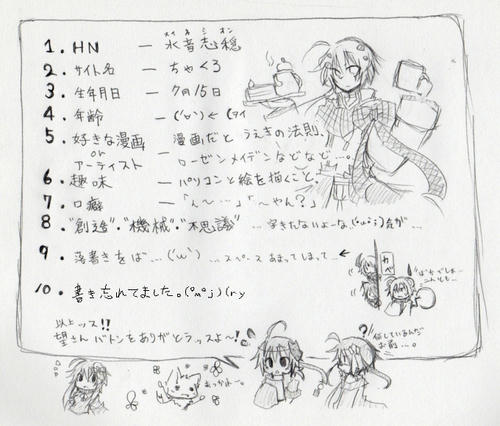 1. HN — 水音志穏
スイネシオン
2. サイト名 — ちゃくろ
3. 生年月日 — 7月15日
4. 年齢 —
5. 好きな漫画 or アーティスト — 漫画だと うえきの法則、
ローゼンメイデンなどなど…。
6. 趣味 — パソコンと絵を描くこと
7. 口癖 — 「ん〜…」「〜やん?」
8. "創造"・"機械"・"不思議"
9. 落書きをば…('ω') …スペースあまってしまって…←
10. 書き忘れてました。
以上ッス!!
望さん バトンをありがとうッスよ〜!
何しているんだ
お前…。